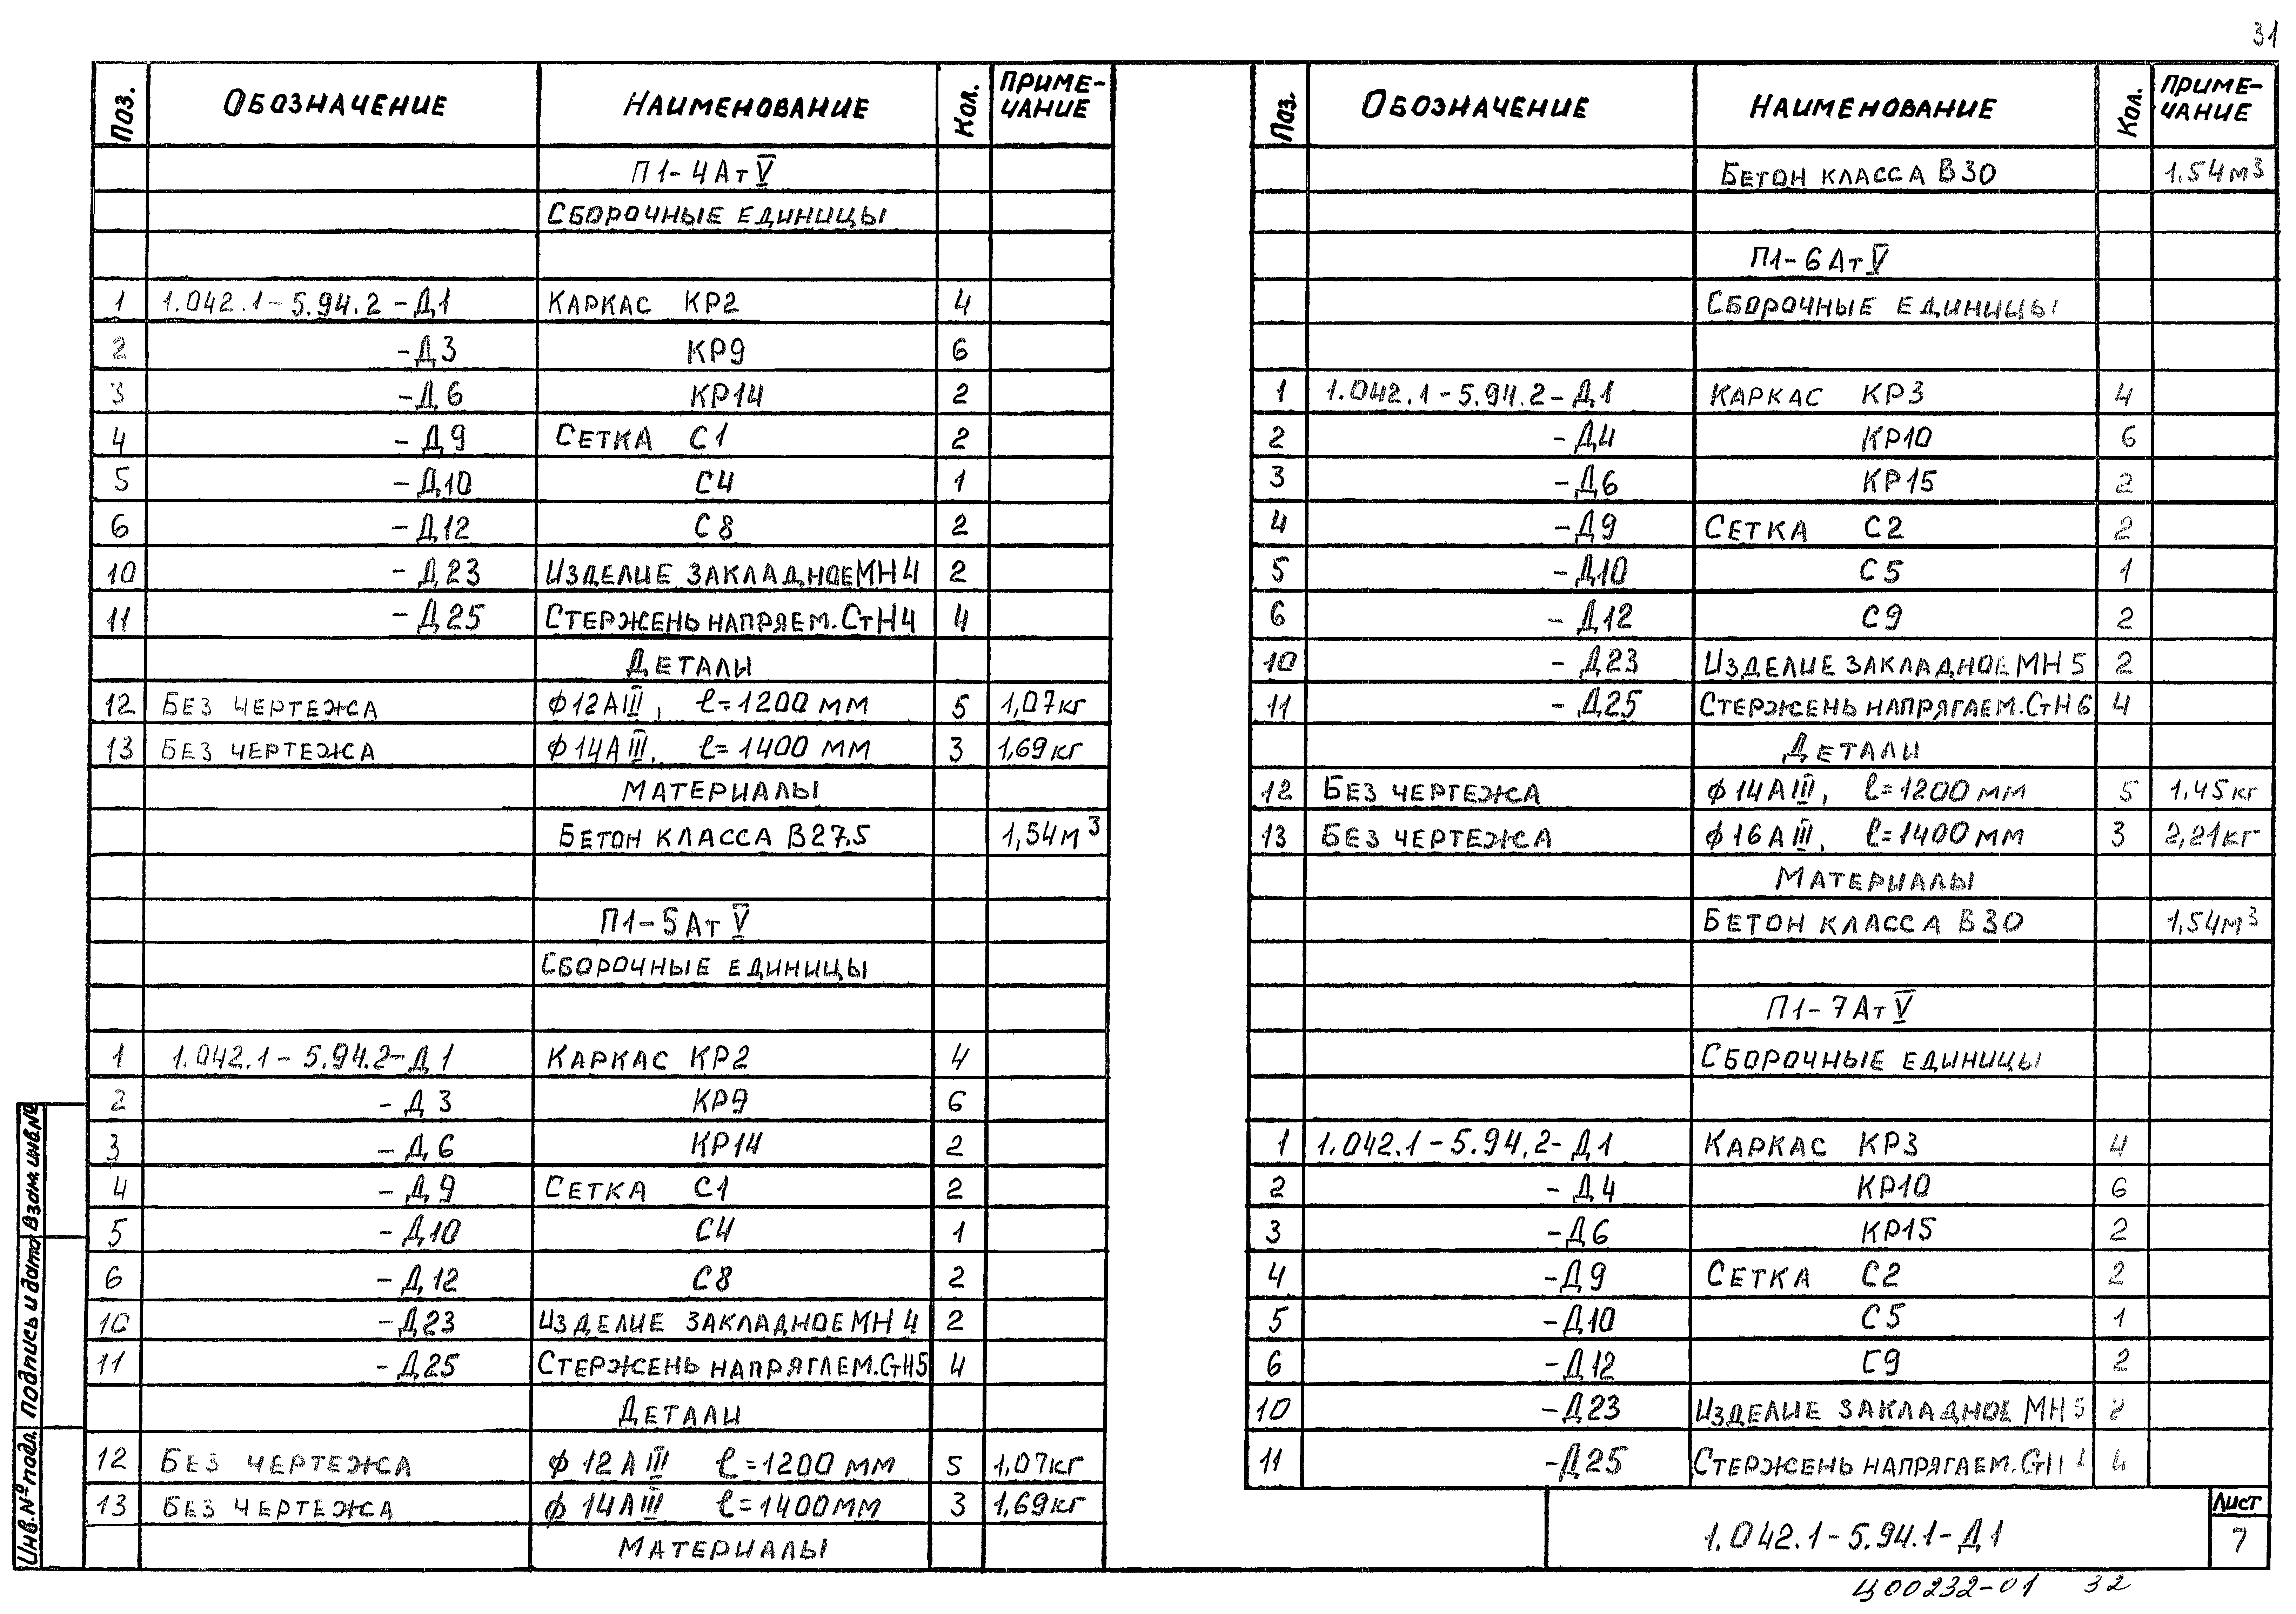 31
Поз. Обозначение Наименование Кол. Приме-
чание
П1-4АтV
Сборочные единицы
1 1.042.1-5.94.2-Д1 Каркас КР2 4
2 -Д3 КР9 6
3 -Д6 КР14 2
4 -Д9 Сетка С1 2
5 -Д10 С4 1
6 -Д12 С8 2
10 -Д23 Изделие закладное МН4 2
11 -Д25 Стержень напряем. СтН4 4
Детали
12 Без чертежа ф12АIII, ℓ=1200 мм 5 1,07кг
13 Без чертежа ф14АIII, ℓ=1400 мм 3 1,69кг
Материалы
Бетон класса В27.5 1,54м³
П1-5АтV
Сборочные единицы
1 1.042.1-5.94.2-Д1 Каркас КР2 4
2 -Д3 КР9 6
3 -Д6 КР14 2
4 -Д9 Сетка С1 2
5 -Д10 С4 1
6 -Д12 С8 2
10 -Д23 Изделие закладное МН4 2
11 -Д25 Стержень напрягаем. СтН5 4
Детали
12 Без чертежа ф12АIII ℓ=1200 мм 5 1,07кг
13 Без чертежа ф14АIII ℓ=1400мм 3 1,69кг
Материалы
Поз. Обозначение Наименование Кол. Приме-
чание
Бетон класса В30 1.54м³
П1-6АтV
Сборочные единицы
1 1.042.1-5.94.2-Д1 Каркас КР3 4
2 -Д4 КР10 6
3 -Д6 КР15 2
4 -Д9 Сетка С2 2
5 -Д10 С5 1
6 -Д12 С9 2
10 -Д23 Изделие закладное МН5 2
11 -Д25 Стержень напрягаем. СтН6 4
Детали
12 Без чертежа ф14АIII, ℓ=1200 мм 5 1.45кг
13 Без чертежа ф16АIII, ℓ=1400 мм 3 2,21кг
Материалы
Бетон класса В30 1,54м³
П1-7АтV
Сборочные единицы
1 1.042.1-5.94.2-Д1 Каркас КР3 4
2 -Д4 КР10 6
3 -Д6 КР15 2
4 -Д9 Сетка С2 2
5 -Д10 С5 1
6 -Д12 С9 2
10 -Д23 Изделие закладное МН5 2
11 -Д25 Стержень напрягаем. 4
Инв.№ подл. Подпись и дата Взам.инв.№
1.042.1-5.94.1-Д1
Лист
7
Ц00232-01 32